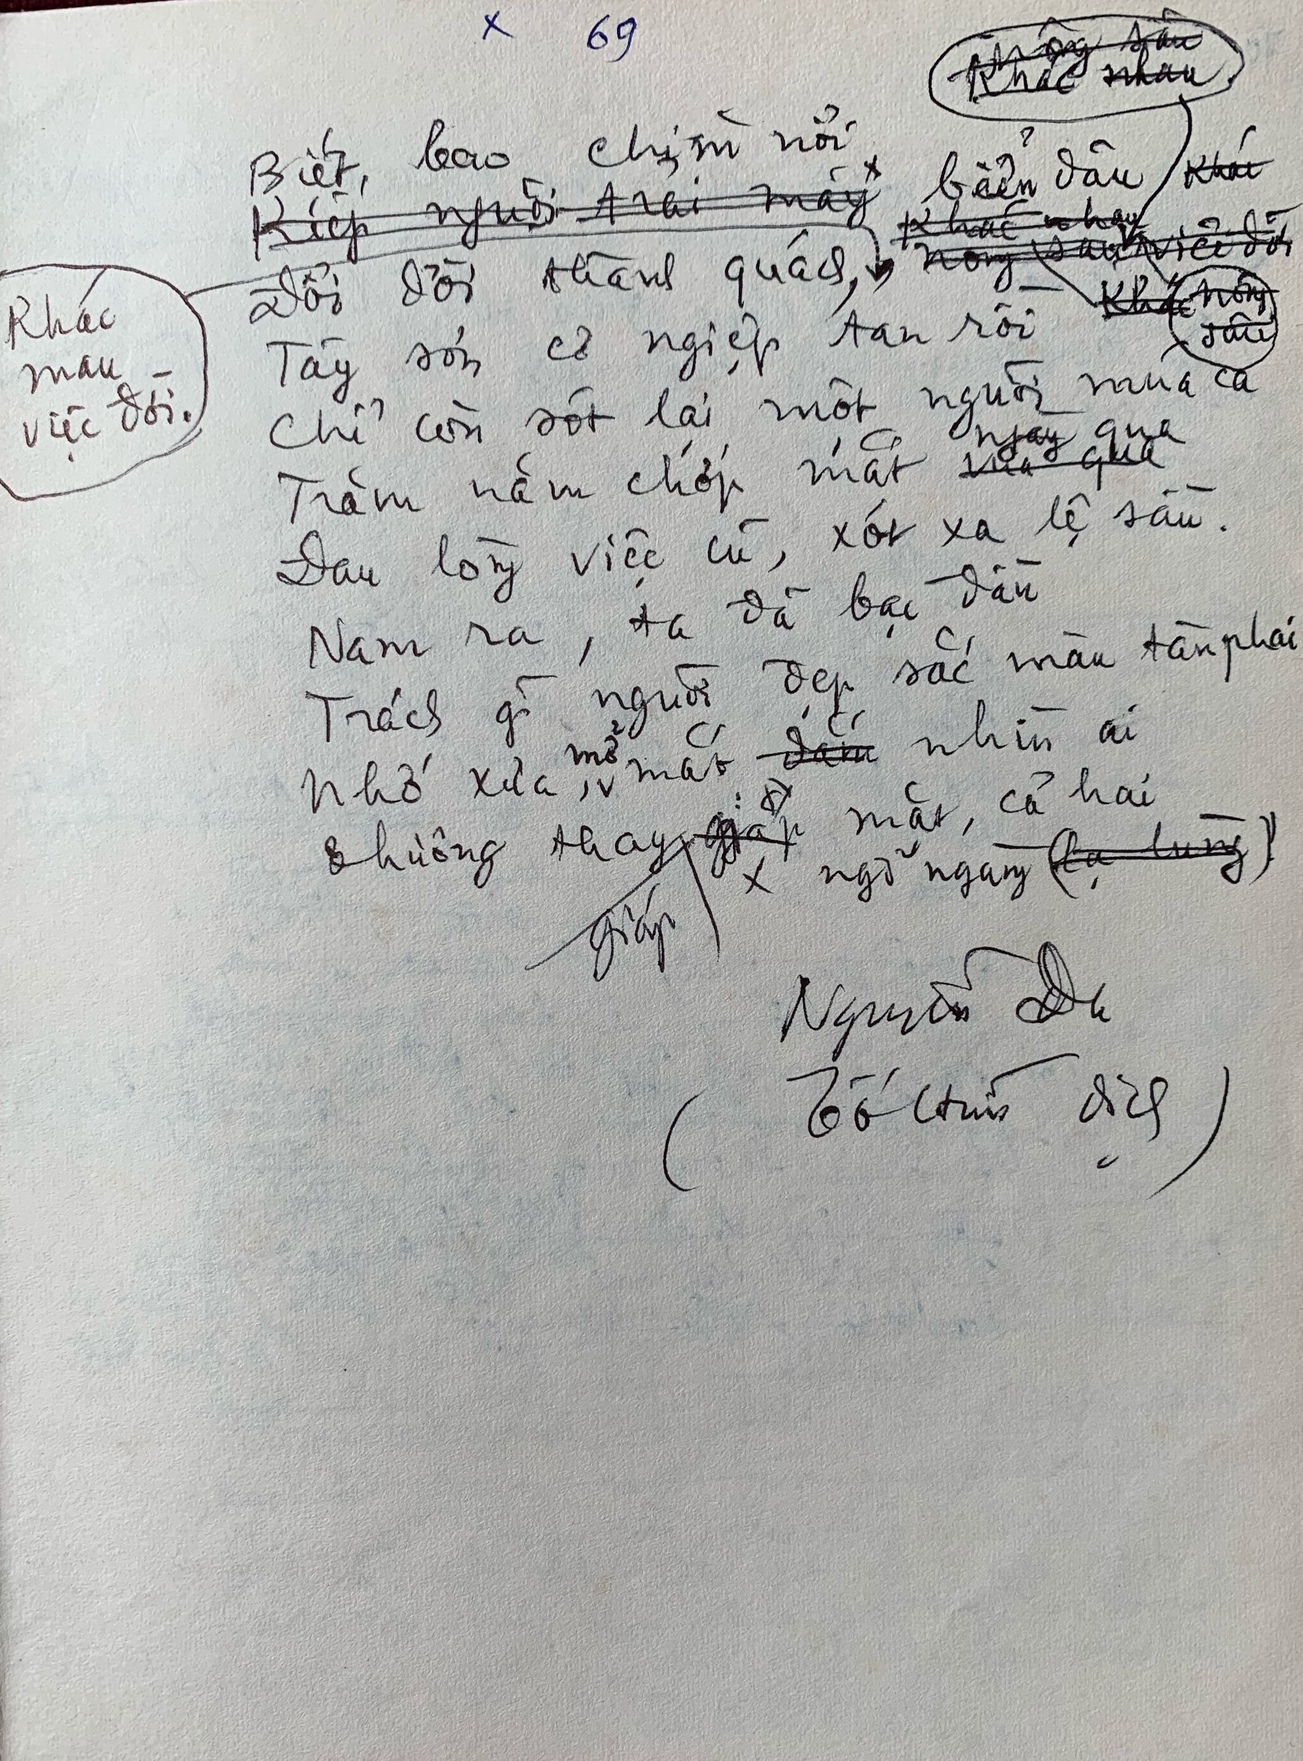 x 69
nông sâu
Khác nhau
Biết, bao chìm nổi biển dâu Khác
Kiếp người trải mấy x Khác nhau
Đổi dời thành quách, nông sau việc đời
Khác nông sâu
Khác
mau
việc đời.
Tây sơn cơ ngiệp tan rồi
Chỉ còn sót lại một người múa ca
Trăm năm chớp mắt ngày qua
vừa qua
Đau lòng việc cũ, xót xa lệ sầu.
Nam ra, ta đã bạc đầu
Trách gì người đẹp sắc màu tàn phai
Nhớ xưa, mở mắt đắm nhìn ai
Thương thay giáp mặt, cả hai
x ngỡ ngàng (lạ lùng)
giáp
Nguyễn Du
(Tố Hữu dịch)